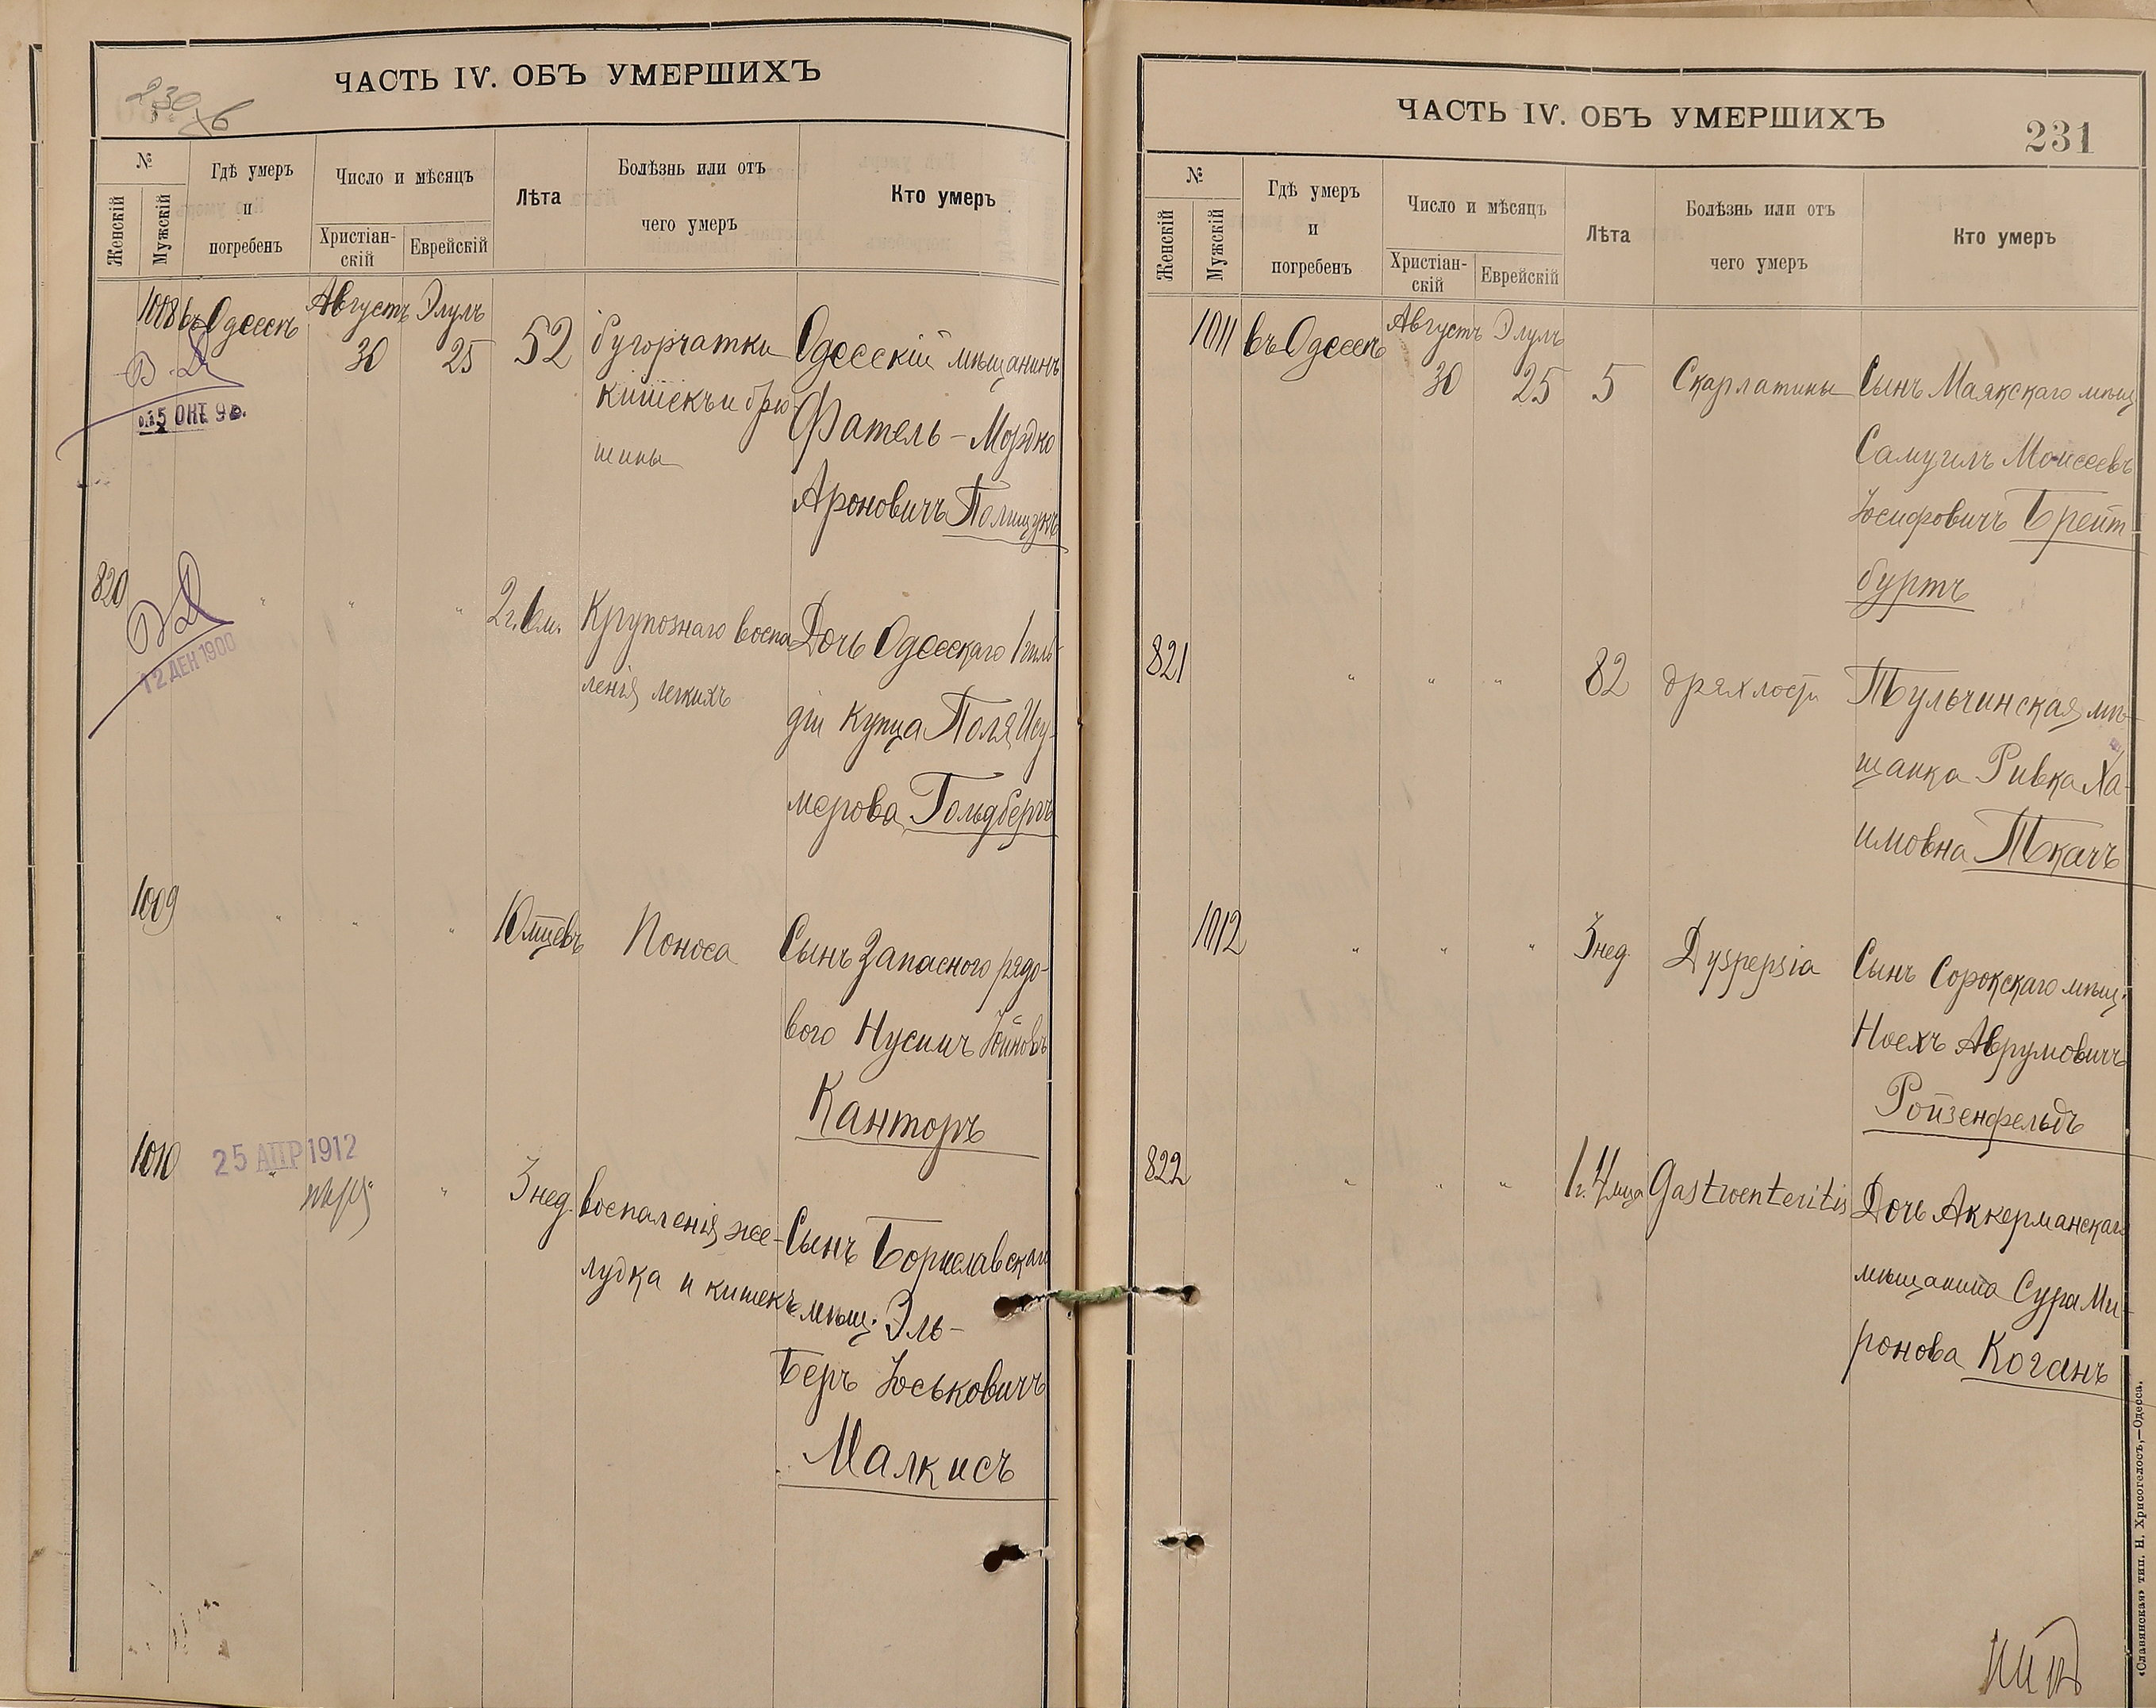 ЧАСТЬ IV. ОБЪ УМЕРШИХЪ
230
№
Женскій
Мужскій
Гдѣ умеръ
и
погребенъ
Число и мѣсяцъ
Христіан-
скій
Еврейскій
Лѣта
Болѣзнь или отъ
чего умеръ
Кто умеръ
1008 въ Одессѣ Августъ Элулъ
30 25 52 бугорчатки Одесскій мѣщанинъ
кишекъ и брю-
шины
Фатель-Мордко
Ароновичъ Полищукъ
5 ОКТ 9
820 " " " 2 г. 6 м. Крупознаго воспа- Дочь Одесскаго 1 гиль-
ленія легкихъ
діи купца Поля Ису-
мерова Гольдбергъ
12 ДЕК 1900
1009 " " " 10 мцевъ Поноса Сынъ запасного рядо-
вого Нусимъ
Канторъ
1010 " " 3 нед. воспаленія же- Сынъ Бориславскаго
лудка и кишекъ мѣщ. Эль-
Беръ Іоськовичъ
Малкисъ
25 АПР 1912
ЧАСТЬ IV. ОБЪ УМЕРШИХЪ
231
№
Женскій
Мужскій
Гдѣ умеръ
и
погребенъ
Число и мѣсяцъ
Христіан-
скій
Еврейскій
Лѣта
Болѣзнь или отъ
чего умеръ
Кто умеръ
1011 въ Одессѣ Августъ Элулъ
30 25 5 Скарлатины Сынъ Маякскаго мѣщ
Самуилъ Моисеевъ
Іосифовичъ Брейт-
буртъ
821 " " " 82 дряхлости Тульчинская мѣ-
щанка Ривка Ха-
имовна Ткачъ
1012 " " " 3 нед. Dyspepsia Сынъ Сорокскаго мѣщ.
Ноехъ Аврумовичъ
Ройзенфельдъ
822 " " " 1 г. 4 мца Gastroenteritis Дочь Аккерманскаго
мѣщанина Сура Ми-
ронова Коганъ
«Славянская» тип. Н. Хрисогелосъ,—Одесса.